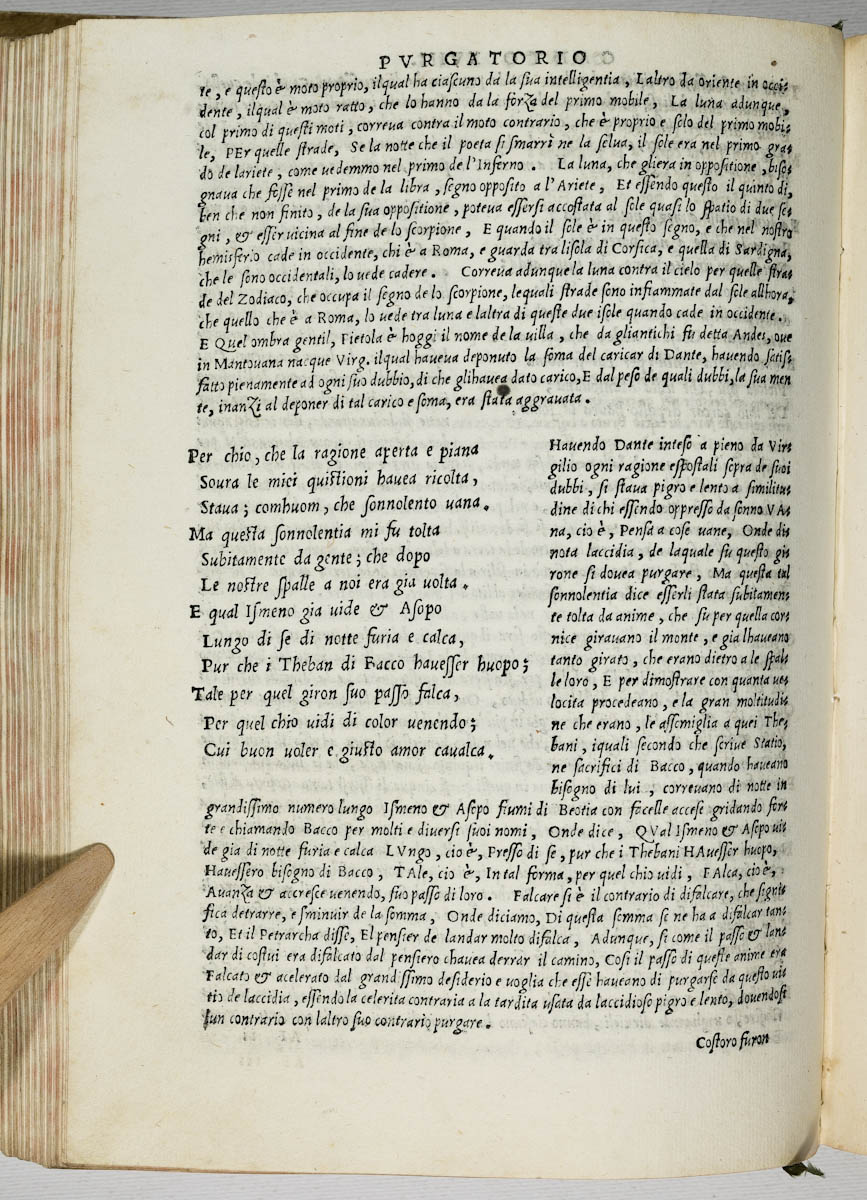 PVRGATORIO
te, e questo è moto proprio, ilqual ha ciascuno da la sua intelligentia, Laltro da oriente in occi-
dente, ilqual è moto ratto, che lo hanno da la forza del primo mobile, La luna adunque,
col primo di questi moti, correua contra il moto contrario, che è proprio e solo del primo mobi-
le, PEr quelle strade, Se la notte che il poeta si smarrì ne la selua, il sole era nel primo gra-
do de lariete, come uedemmo nel primo de l'Inferno. La luna, che gliera in oppositione, biso-
gnaua che fosse nel primo de la libra, segno opposito a l'Ariete, Et essendo questo il quinto di,
ben che non finito, de la sua oppositione, poteua essersi accostata al sole quasi lo spatio di due se-
gni, & esser uicina al fine de lo scorpione, E quando il sole è in questo segno, e che nel nostro
hemisferio cade in occidente, chi è a Roma, e guarda tra lisola di Corsica, e quella di Sardigna,
che le sono occidentali, lo uede cadere. Correua adunque la luna contra il cielo per quelle stra-
de del Zodiaco, che occupa il segno de lo scorpione, lequali strade sono infiammate dal sole allhora,
che quello che è a Roma, lo uede tra luna e laltra di queste due isole quando cade in occidente.
E Quel ombra gentil, Pietola è hoggi il nome de la uilla, che da gliantichi fu detta Andes, oue
in Mantouana nacque Virg. ilqual haueua deponuto la soma del caricar di Dante, hauendo satis-
fatto pienamente ad ogni suo dubbio, di che glihauea dato carico, E dal peso de quali dubbi, la sua men
te, inanzi al deponer di tal carico e soma, era stata aggrauata.
Per chio, che la ragione aperta e piana
Soura le miei quistioni hauea ricolta,
Staua; comhuom, che sonnolento uana.
Ma questa sonnolentia mi fu tolta
Subitamente da gente; che dopo
Le nostre spalle a noi era gia uolta.
E qual Ismeno gia uide & Asopo
Lungo di se di notte furia e calca,
Pur che i Theban di Bacco hauesser huopo;
Tale per quel giron suo passo falca,
Per quel chio uidi di color uenendo;
Cui buon uoler e giusto amor caualca.
Hauendo Dante inteso a pieno da Vir-
gilio ogni ragione espostali sopra de suoi
dubbi, si staua pigro e lento a similitu-
dine di chi essendo oppresso da sonno VA-
na, cio è, Pensa a cose uane, Onde di-
nota laccidia, de laquale su questo gi-
rone si douea purgare, Ma questa tal
sonnolentia dice esserli stata subitamen-
te tolta da anime, che su per quella cor-
nice girauano il monte, e gia lhaueano
tanto girato, che erano dietro a le spal-
le loro, E per dimostrare con quanta ue-
locita procedeano, e la gran moltitudi-
ne che erano, le assemiglia a quei The-
bani, iquali secondo che scriue Statio,
ne sacrifici di Bacco, quando haueano
bisogno di lui, correuano di notte in
grandissimo numero lungo Ismeno & Asopo fiumi di Beotia con facelle accese gridando for-
te e chiamando Bacco per molti e diuersi suoi nomi, Onde dice, QVal Ismeno & Asopo ui-
de gia di notte furia e calca LVngo, cio è, Presso di se, pur che i Thebani HAuesser huopo,
Hauessero bisogno di Bacco, TAle, cio è, In tal forma, per quel chio uidi, FAlca, cio è,
Auanza & accresce uenendo, suo passo di loro. Falcare si è il contrario di difalcare, che signi-
fica detrarre, e sminuir de la somma, Onde diciamo, Di questa somma se ne ha a difalcar tan-
to, Et il Petrarcha disse, El pensier de landar molto difalca, Adunque, si come il passo & lan-
dar di costui era difalcato dal pensiero chauea derrar il camino, Cosi il passo di queste anime era
Falcato & acelerato dal grandissimo desiderio e uoglia che esse haueano di purgarse da questo ui-
tio de laccidia, essendo la celerita contraria a la tardita usata da laccidioso pigro e lento, douendosi
lun contrario con laltro suo contrario purgare.
Costoro furon